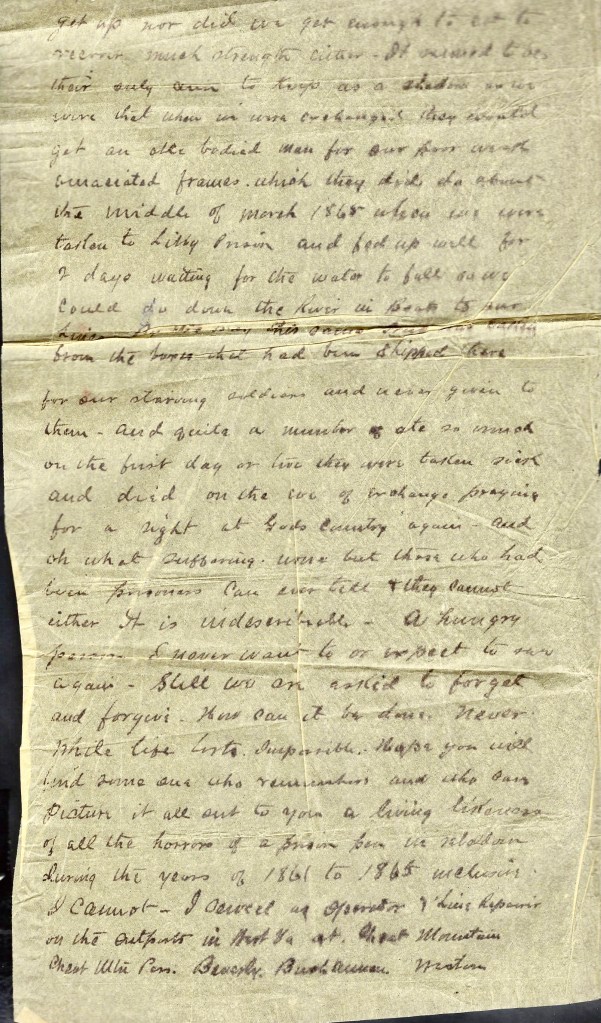 get up nor did we get enough to eat to
recover much strength either - It seemed to be
their only aim to keep as a shadow as we
were that when we were exchanged they would
get an able bodied man for our poor weak
emaciated frames. which they did do about
the middle of March 1865 when we were
taken to Libby Prison and fed up well for
2 days waiting for the water to fall so we
could do down the River in boats to our
Lines
from the boxes that had been shipped there
for our starving soldiers and never given to
them - and quite a number ate so much
on the first day or two they were taken sick
and died on the eve of exchange praying
for a sight at Gods Country again - and
oh what suffering. none but those who had
been prisoners can ever tell & they cannot
either It is indescribable - A hungry
person I never want to or expect to see
again - Still we are asked to forget
and forgive. How can it be done. Never.
While life lasts. Impossible. - Hope you will
find some one who remembers and who can
picture it all out to you a living likeness
of all the horrors of a prison pen in rebeldom
during the years of 1861 to 1865 inclusive.
I cannot - I served as operator & Line Repairer
on the outposts in West Va at. Cheat Mountain
Cheat Mtn Pass. Beverly. Buckhannon. Weston